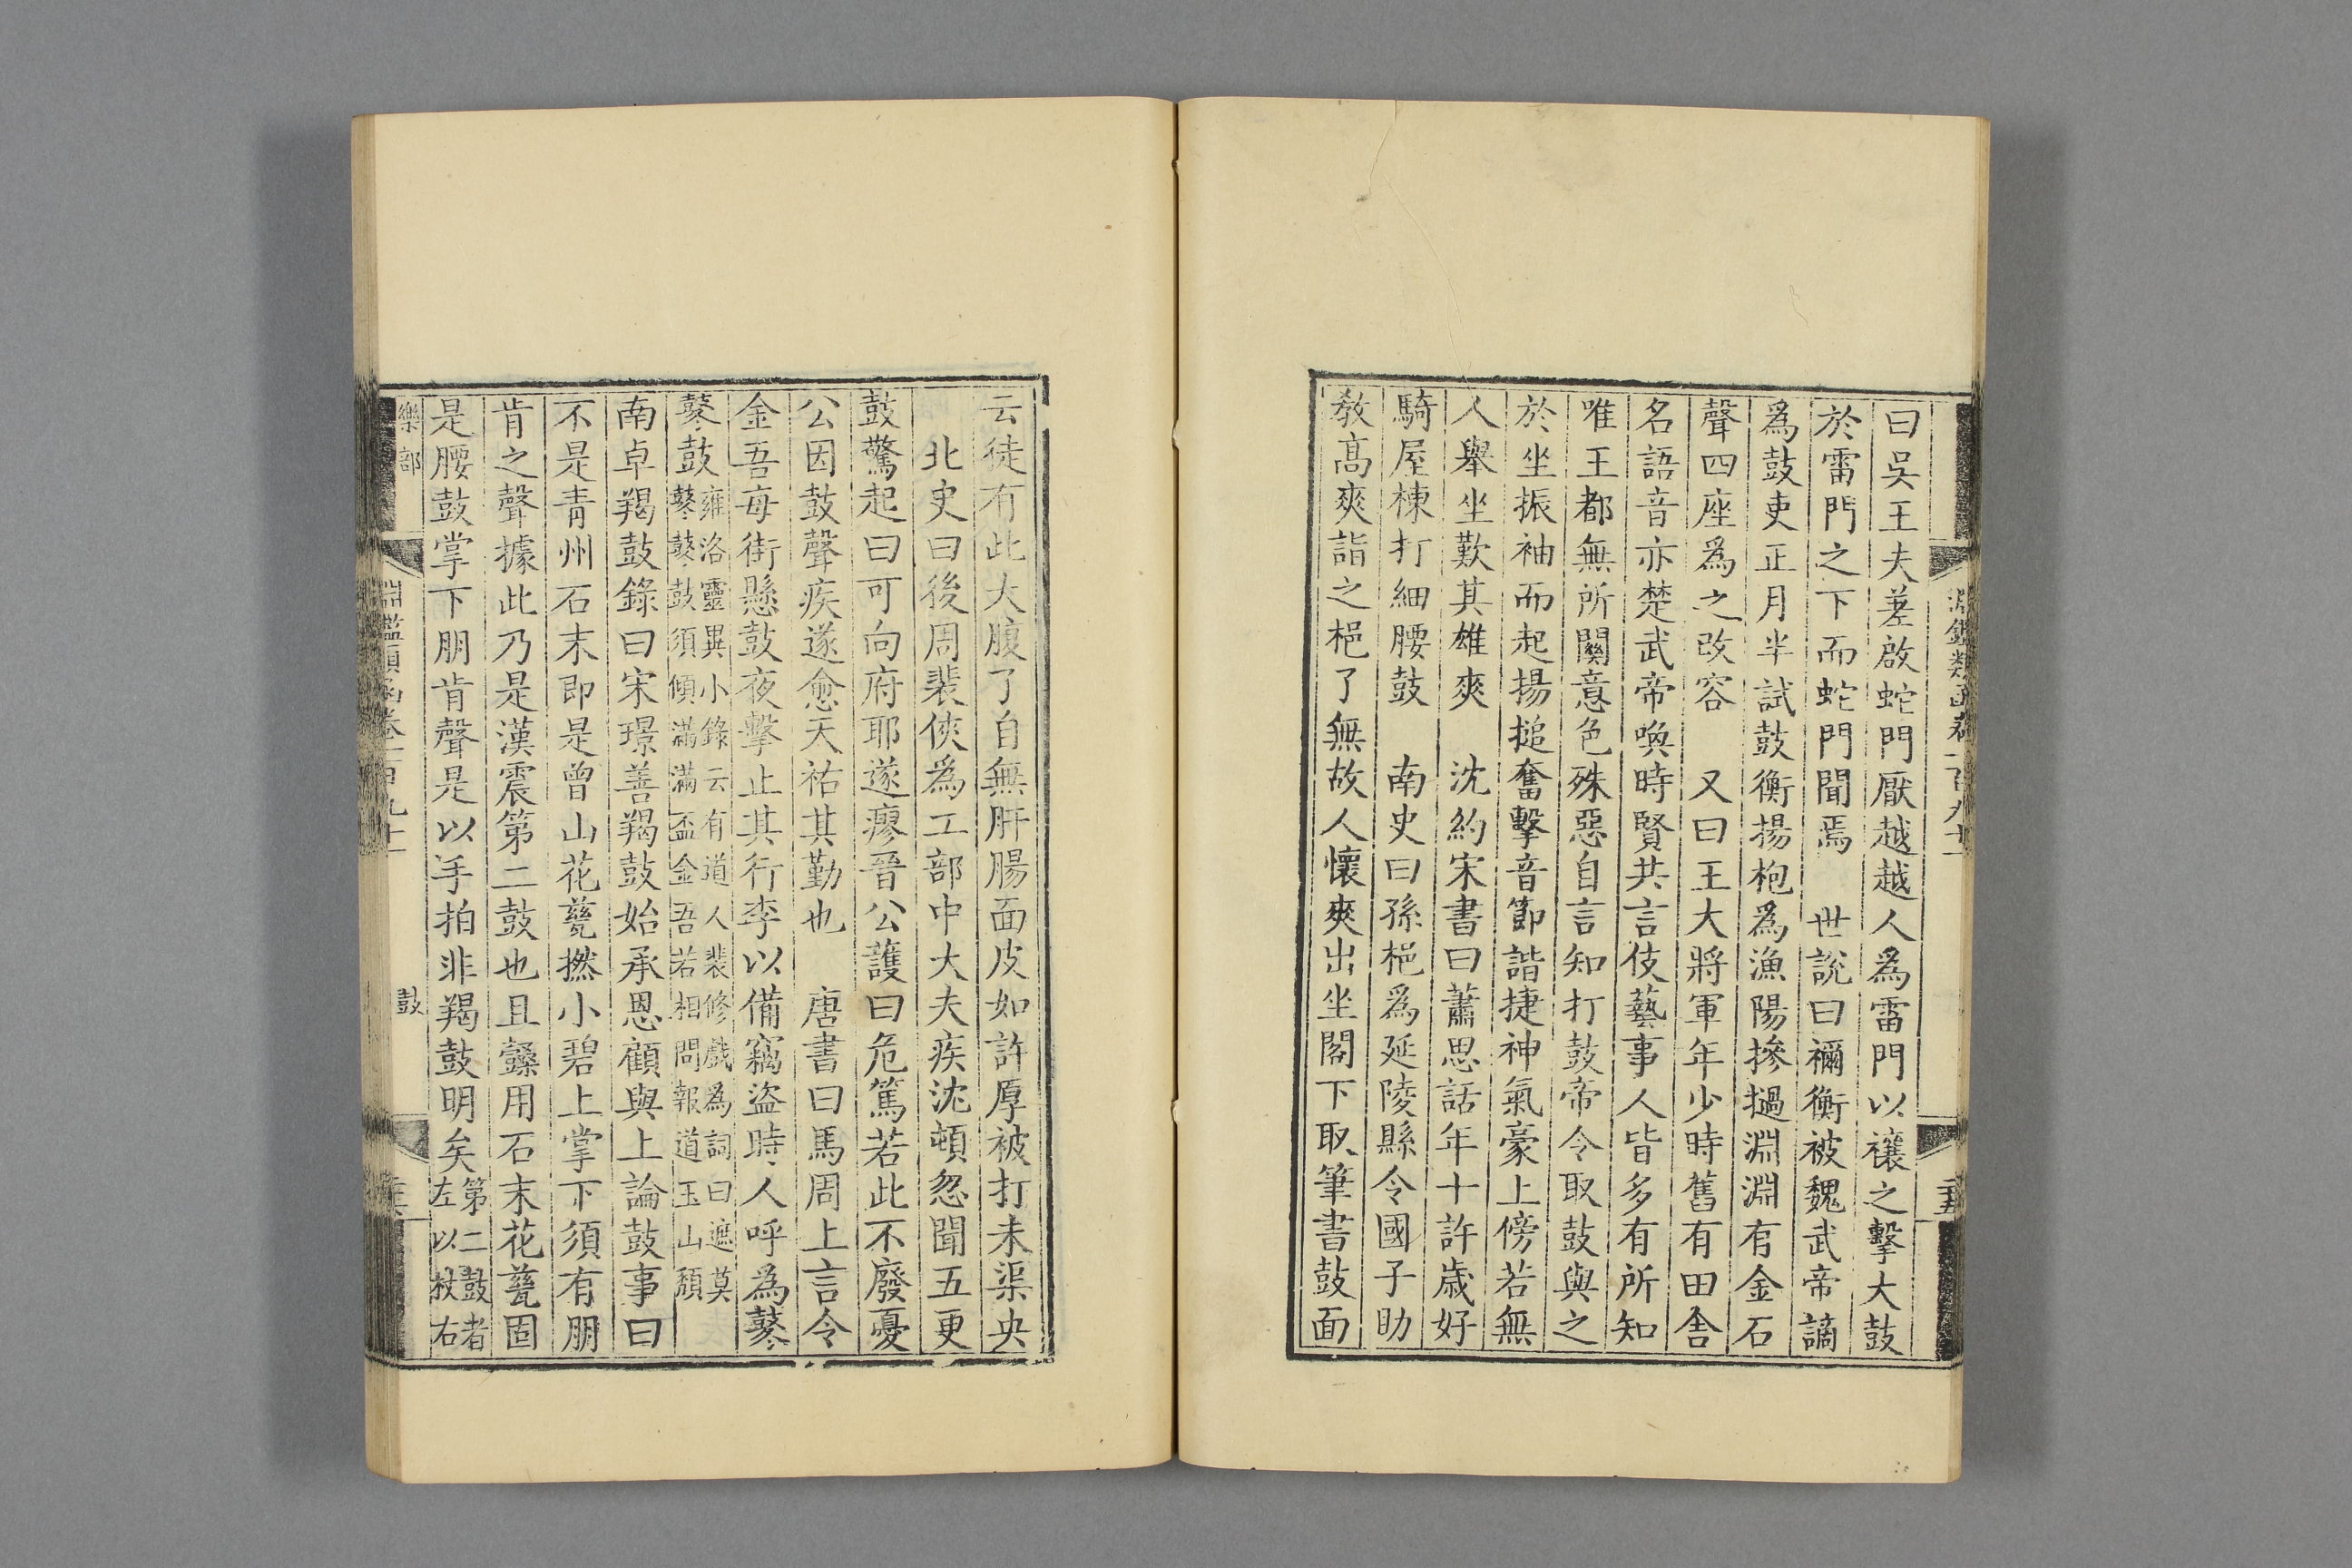 淵鑑類函卷一百九十
二十五
曰吳王夫差啟蛇門厭越越人為雷門以禳之擊大鼓
於雷門之下而蛇門聞焉　世說曰禰衡被魏武帝謫
為鼓吏正月半試鼓衡揚枹為漁陽摻撾淵淵有金石
聲四座為之改容　又曰王大將軍年少時舊有田舍
名語音亦楚武帝喚時賢共言伎藝事人皆多有所知
唯王都無所關意色殊惡自言知打鼓帝令取鼓與之
於坐振袖而起揚搥奮擊音節諧捷神氣豪上傍若無
人舉坐歎其雄爽　沈約宋書曰蕭思話年十許歲好
騎屋棟打細腰鼓　南史曰孫挹為延陵縣令國子助
教高爽詣之挹了無故人懷爽出坐閣下取筆書鼓面
云徒有此大腹了自無肝腸面皮如許厚被打未渠央
北史曰後周裴俠為工部中大夫疾沈頓忽聞五更
鼓驚起曰可向府耶遂瘳晉公護曰危篤若此不廢憂
公因鼓聲疾遂愈天祐其勤也　唐書曰馬周上言令
金吾每街懸鼓夜擊止其行李以備竊盜時人呼為鼕
鼕鼓雍洛靈異小錄云有道人裴修戲為詞曰遮莫
鼕鼕鼓須傾滿滿盃金吾若相問報道玉山頹
南卓羯鼓錄曰宋璟善羯鼓始承恩顧與上論鼓事曰
不是青州石末即是曾山花甆撚小碧上掌下須有朋
肯之聲據此乃是漢震第二鼓也且鼗用石末花甆固
是腰鼓掌下朋肯聲是以手拍非羯鼓明矣第二鼓者
左以杖右
樂部
淵鑑類函卷一百九十
鼓